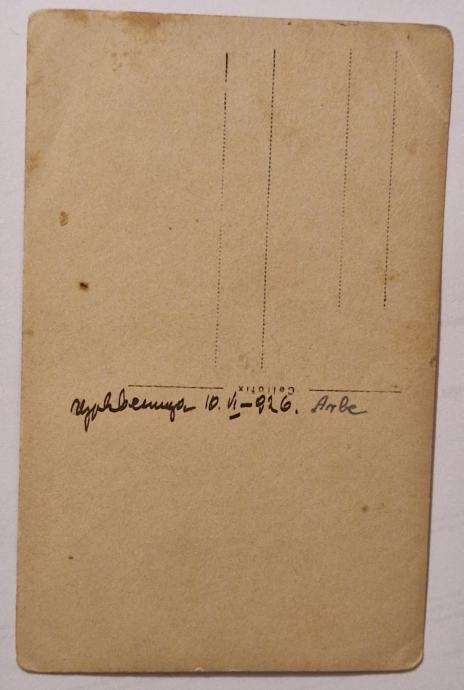 Cellofix
Црквеница 10. VI – 926. Arbe